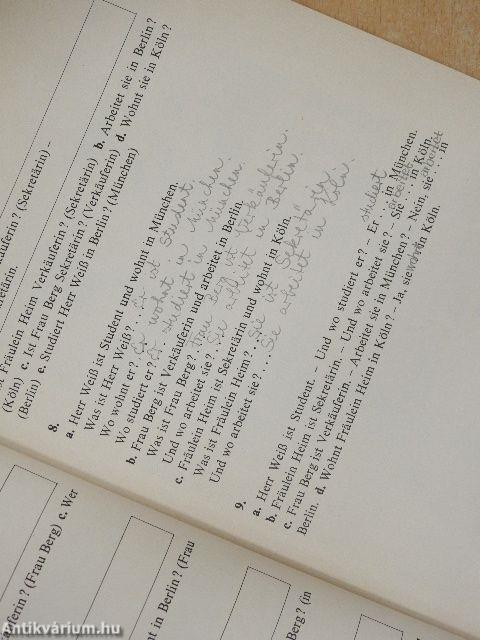 st Fräulein Heim Verkäuferin? (Sekretärin) –
kretärin.
(Köln) c. Ist Frau Berg Sekretärin? (Verkäuferin) b. Arbeitet sie in Berlin?
(Berlin) e. Studiert Herr Weiß in Berlin? (München) d. Wohnt sie in Köln?
8.
a. Herr Weiß ist Student und wohnt in München.
Was ist Herr Weiß? ... Er ist Student.
Wo wohnt er? Er wohnt in München.
Wo studiert er? Er studiert in München.
b. Frau Berg ist Verkäuferin und arbeitet in Berlin.
Was ist Frau Berg? Frau Berg ist Verkäuferin.
Und wo arbeitet sie? .. Sie arbeitet in Berlin.
c. Fräulein Heim ist Sekretärin und wohnt in Köln.
Was ist Fräulein Heim? ... Sie ist Sekretärin.
Und wo arbeitet sie? ... Sie arbeitet in Köln.
9.
a. Herr Weiß ist Student. – Und wo studiert er? – Er studiert in München.
b. Fräulein Heim ist Sekretärin. – Und wo arbeitet sie? – Sie arbeitet in Köln.
c. Frau Berg ist Verkäuferin. – Arbeitet sie in München? – Nein, sie arbeitet in
Berlin. d. Wohnt Fräulein Heim in Köln? – Ja, sie wohnt in Köln.
äuferin? (Frau Berg) c. Wer
nt in Berlin? (Frau
Berg? (in
Antikvárium.hu